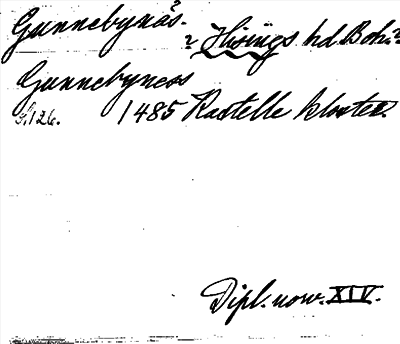 Gunnebynäs.
? Hisings hd. Boh.?
Gunnebyness
s. 126. 1485 Kastelle kloster.
Dipl. norv. XIV.